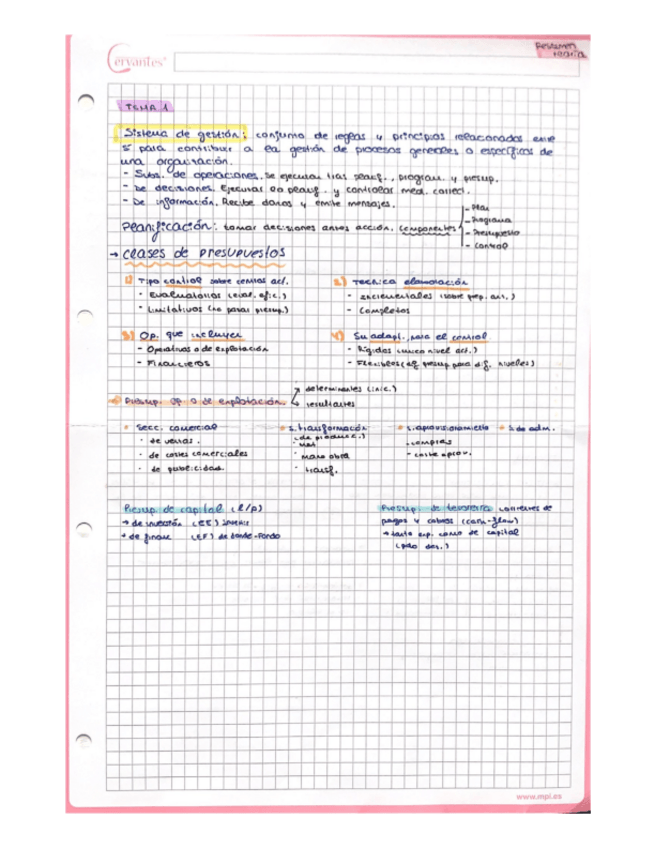 Resumen
teoría
Cervantes
TEMA 1
Sistema de gestión: conjunto de reglas y principios relacionados entre
sí para contribuir a la gestión de procesos generales o específicos de
una organización.
- Subs. de operaciones, se ejecutan tras planif., program. y presup.
- De decisiones. Ejecutar la planif. y controlar med. correct.
- De información. Recibe datos y emite mensajes.
Planificación: tomar decisiones antes acción. Componentes
- Plan
- Programa
- Presupuesto
- Control
→ Clases de presupuestos
1) Tipo control sobre centros act.
- Evaluatorios (eval. efic.)
- Limitativos (no pasar presup.)
2) Técnica elaboración
- Incrementales (sobre prep. ant.)
- Completos
3) Op. que incluyen
- Operativos o de explotación
- Financieros
4) Su adapt. para el control
- Rígidos (único nivel act.)
- Flexibles (dif presup para dif. niveles)
→ Presup. Op. o de explotación.
determinantes (inic.)
resultantes
Secc. comercial
- de ventas.
- de costes comerciales
- de publicidad.
s. transformación
(de producc.)
- Mat
- Mano obra
- transf.
s. aprovisionamiento
- compras
- coste aprov.
s. de adm.
Presup. de capital (l/p)
→ de inversión (EE)
→ de financ (EF) de donde - Fondo
Presup. de tesorería corrientes de
pagos y cobros (cash-flow)
→ tanto exp. como de capital
www.mpi.es